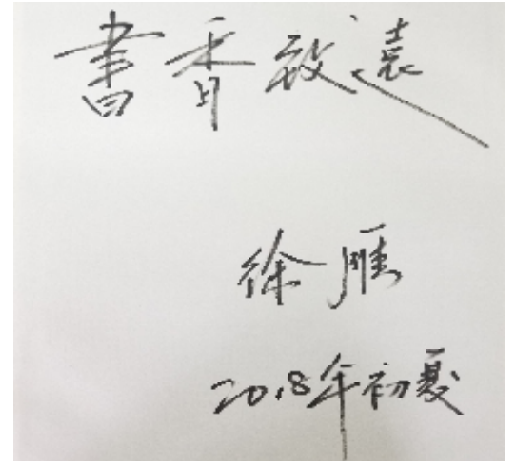 書香致遠
徐雁
2018年初夏